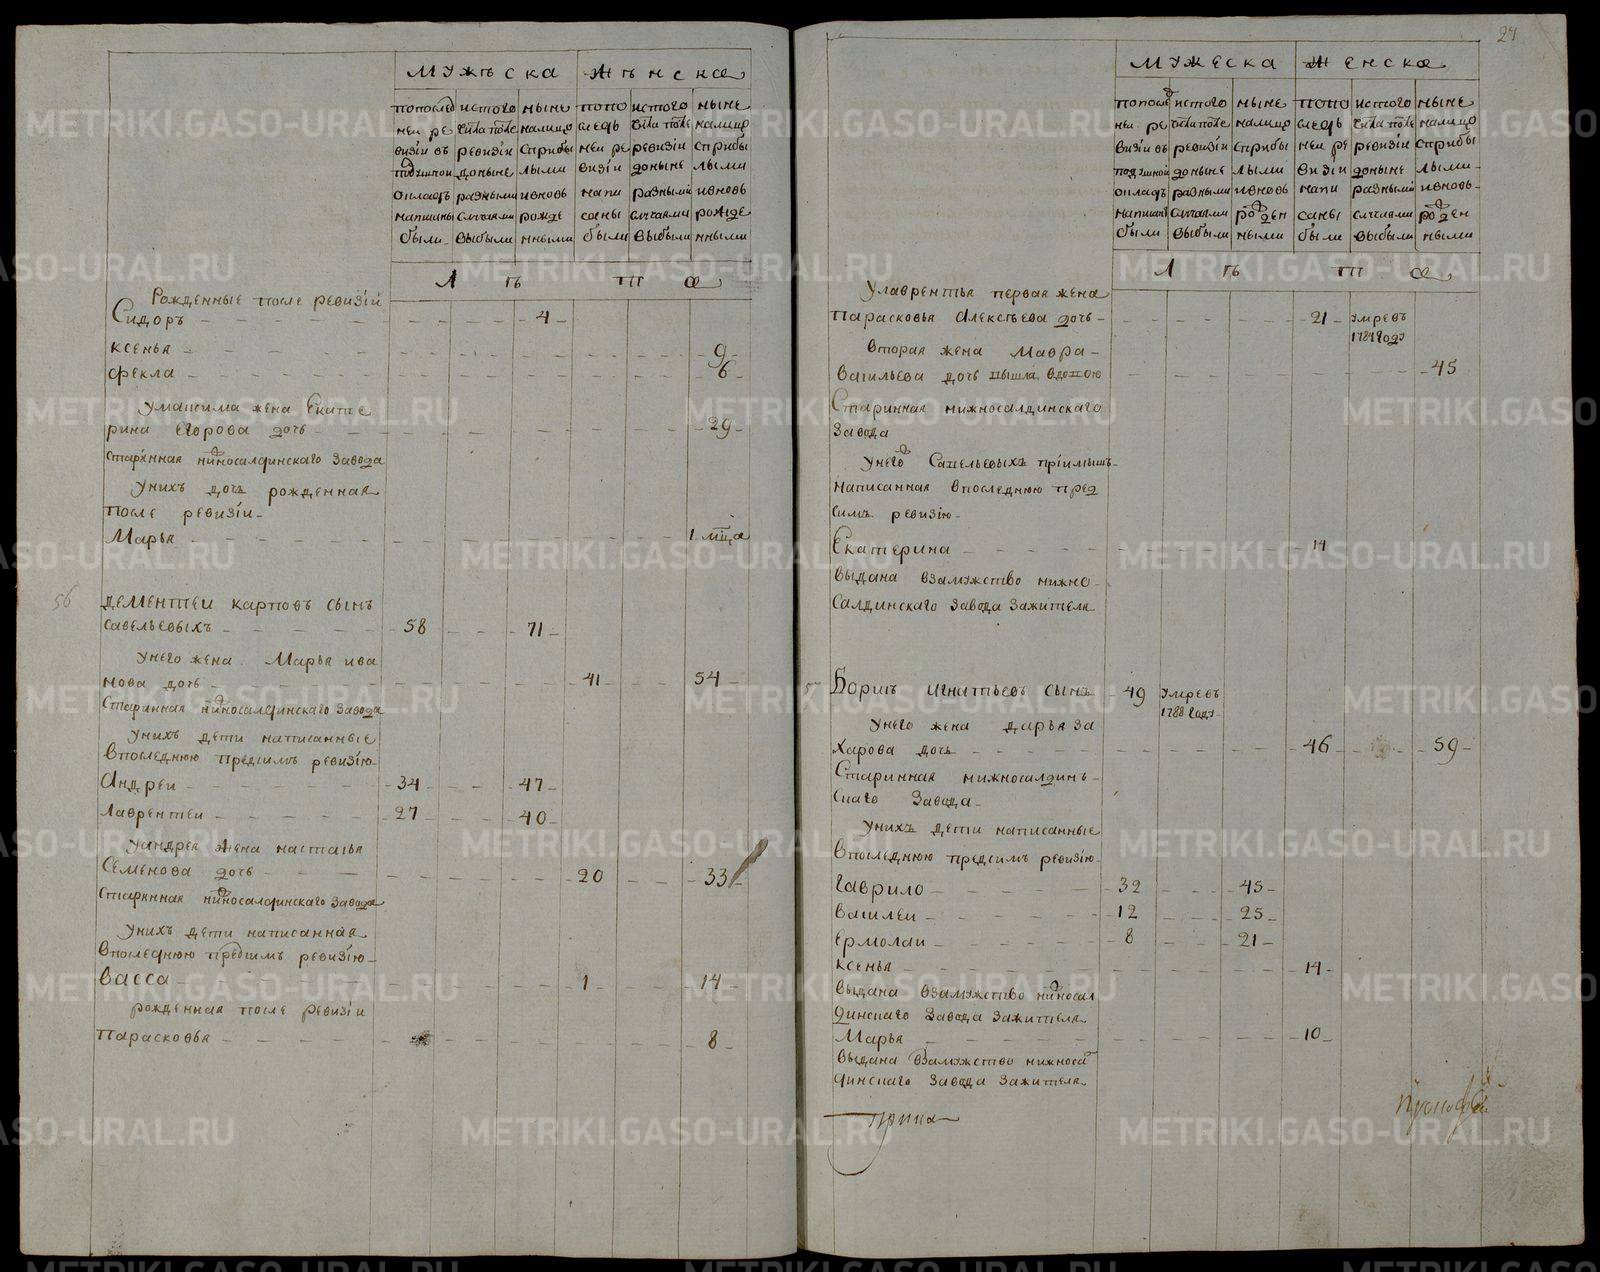 мужъска женска
попослѣд
неи ре
визіи въ
подушной
окладъ
написаны
были
истого
числа после
ревизіи
доныне
разными
случаями
выбыли
ныне
налицо
сприбы
лыми
ивновь
рожде
нными
попо
следь
неи ре
визіи
напи
саны
были
истого
числа после
ревизіи
доныне
разными
случаями
выбыли
ныне
налицо
сприбы
лыми
ивновь
рожде
нными
Лѣта
Рожденные после ревизіи
Сидоръ 4
ксенья 9
фекла 6
умаѯима жена Екате
рина Егорова дочь 29
старинная нижносалдинскаго завода
унихъ дочь рожденная
после ревизіи
Марья 1 мца
56
дементеи карповъ сынъ
савельевыхъ 58 71
унего жена Марья ива
нова дочь 41 54
старинная нижносалдинскаго завода
унихъ дети написанные
впоследнюю предсимъ ревизію
андреи 34 47
лаврентеи 27 40
уандрея жена настасья
семенова дочь 20 33
старинная нижносалдинскаго завода
унихъ дети написанная
впоследнюю предсимъ ревизію
васса 1 14
рожденная после ревизіи
парасковья 8
27
мужеска женска
попослед
неи ре
визіи въ
подушной
окладъ
написаны
были
истого
числа после
ревизіи
доныне
разными
случаями
выбыли
ныне
налицо
сприбы
лыми
ивновь
рожден
ными
попо
следь
неи ре
визіи
напи
саны
были
истого
числа после
ревизіи
доныне
разными
случаями
выбыли
ныне
налицо
сприбы
лыми
ивновь
рожден
ными
Лѣта
улаврентья первая жена
парасковья алексѣева дочь 21 умре въ
1784 году
вторая жена Мавра
васильева дочь вышла вдовою 45
старинная нижносалдинскаго
завода
унего Савельевыхъ пріимышъ
написанная впоследнюю пред
симъ ревизію
Екатерина 11
выдана взамужство нижно
салдинскаго завода зажителя
Борисъ игнатьевъ сынъ 49 умре въ
1788 году
унего жена дарья за
харова дочь 46 59
старинная нижносалдинъ
скаго завода
унихъ дети написанные
впоследнюю предсимъ ревизію
гаврило 32 45
василеи 12 25
ермолаи 8 21
ксенья 14
выдана взамужство нижносал
динскаго завода зажителя
Марья 10
выдана взамужство нижноса
динскаго завода зажителя
METRIKI.GASO-URAL.RU